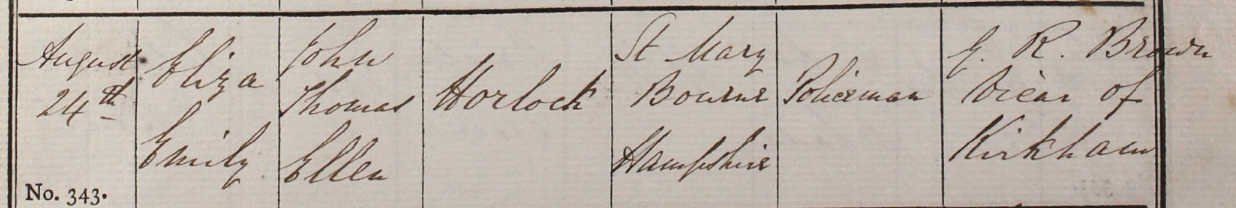 August
24th
No. 343.
Eliza
Emily
John
Thomas
Ellen
Horlock
St Mary
Bourne
Hampshire
Policeman
G. R. Brown
Vicar of
Kirkham